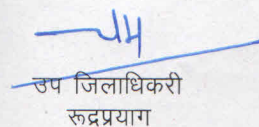 उप जिलाधिकरी
रूद्रप्रयाग